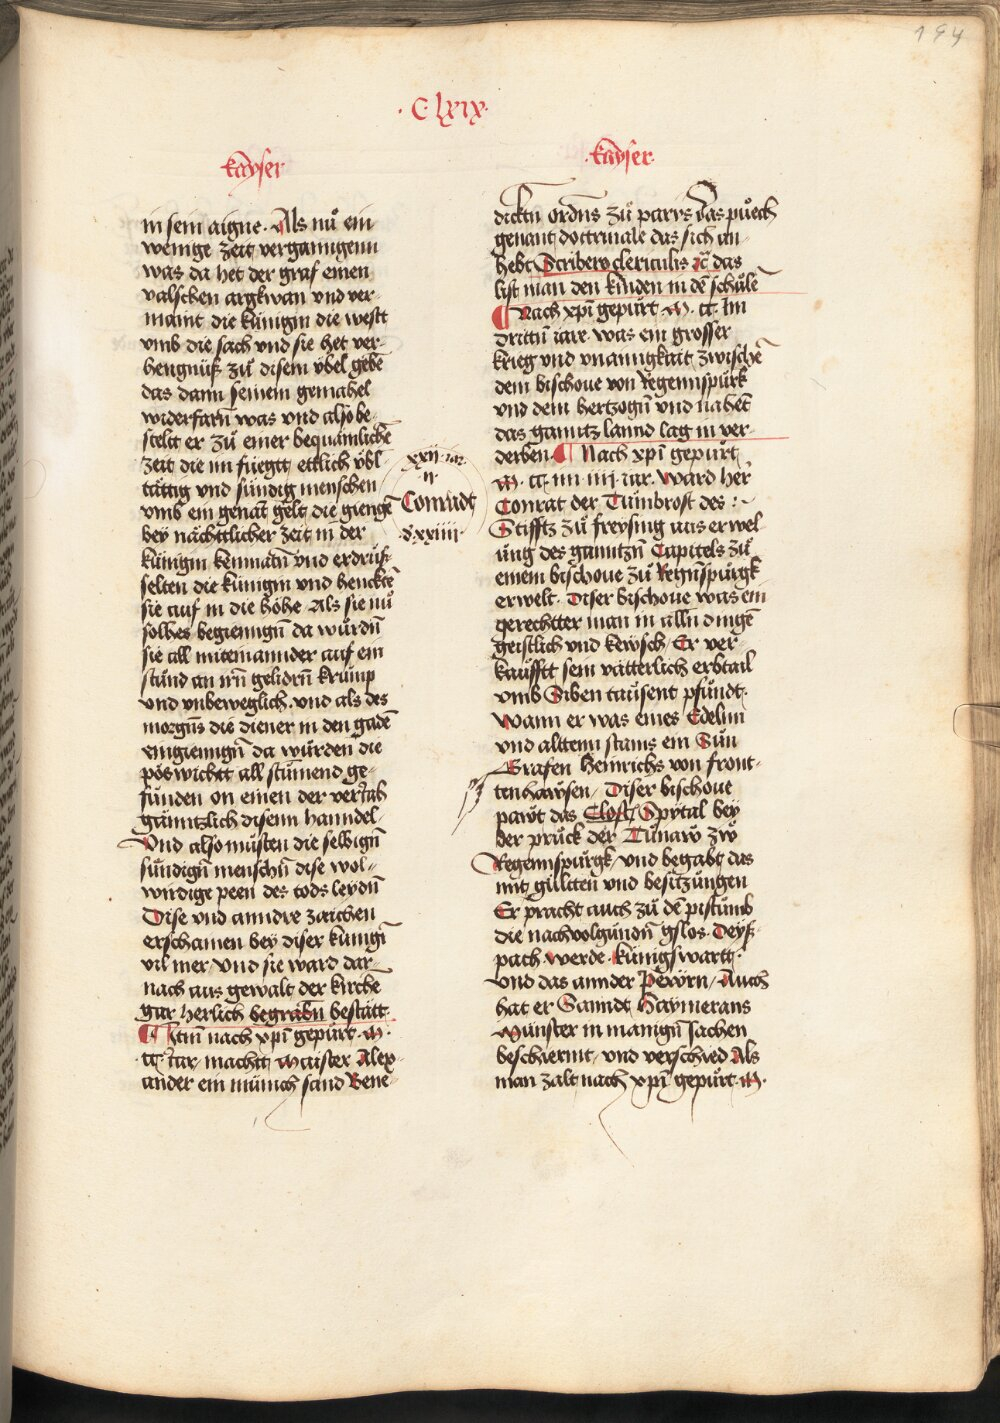 194
· C · lxix ·
kaÿser
in sein aigne · Als nů ein
wenige zeit vergannigenn
was da het der graf einen
valschen argkwan vnd ver-
maint die künigin die westt
vmb die sach vnd sie het ver-
hengnüß zů disem vbel gebē
das dann seinem gemahel
widerfarñ was vnd also be-
stelt er zů einer bequämlichē
zeit die im füegtt ettlich vbl-
tättig vnd sündig menschen
vmb ein genāt gelt die giengē
bey nächttlicher zeit in der
künigin kemnatñ vnd erdrüs-
selten die künigin vnd henckte
sie auf in die höhe Als sie nů
solhes begienngñ da wůrdñ
sie all miteinannder auf ein
stůnd an irñ gelidrñ krůmp
vnd vnbeweglich · vnd als des
morgñs die diener in den gadē
eingienngñ da wůrden die
pöswicht all stůmend ge-
funden on einen der verjah
gänntzlich disenn hanndel-
Vnd also můsten die selbigñ
sündigñ menschñ dise wol-
wirdige peen des tods leydñ
Dise vnd anndre zaichen
erschainen bey diser künigī
vil mer / vnd sie ward dar-
nach aus gewalt der kirche
gar herlich begrabñ bestätt
¶ Itm̄ nach xp̄i gepůrt · M ·
cc · Jar / machtt Maister Alex-
ander ein münich sand Bene-
xxij · iar
n ·
Conradt
· dxxiiij ·
· kaÿser ·
dicktñ ordñs zů parys das půech
genant doctrinale das sich an-
hebt Scribere clericulis ꝛc̄ das
list man den kinden in dē schůle
¶ Nach xp̄i gepůrt · M · cc · Im
drittñ iare was ein grosser
krieg vnd vnainigkait zwischē
dem bischoue von Regennspůrk
vnd dem hertzogñ vnd nahēt
das ganntz lannd lag in ver-
derben · ¶ Nach xp̄i gepůrt
M · cc · im iiij · iar · ward her
Conrat der Tůmbrost des : -
Stifftz zů freysing aus erwel
ung des ganntzñ Capitels zů
einem bischoue zů Regñspůrgk
erwelt · Diser bischoue was ein
gerechtter man in allñ dingē
geistlich vnd kewsch / Er ver-
kaufftt sein vätterlich erbtail
vmb Siben tausent pfůndt ·
Wann er was eines Edelnn
vnd alttenn stams ein Sůn
Grafen Heinrichs von front-
tenhawsen / Diser bischoue
pawt das Clost Spytal bey
der prück der Tůnaw zw
Regennspůrgk / vnd begabt das
mit gülttenn vnd besitzůngen
Er pracht auch zů dē pistůmb
die nachvolgůndñ gslos · Teys-
pach werde · künigswartt ·
Vnd das annder Pewrn / Auch
hat er Sanndt Haymerans
Münster in manigñ sachen
beschiermt / vnd verschied Als
man zalt nach xp̄i gepůrt · M ·